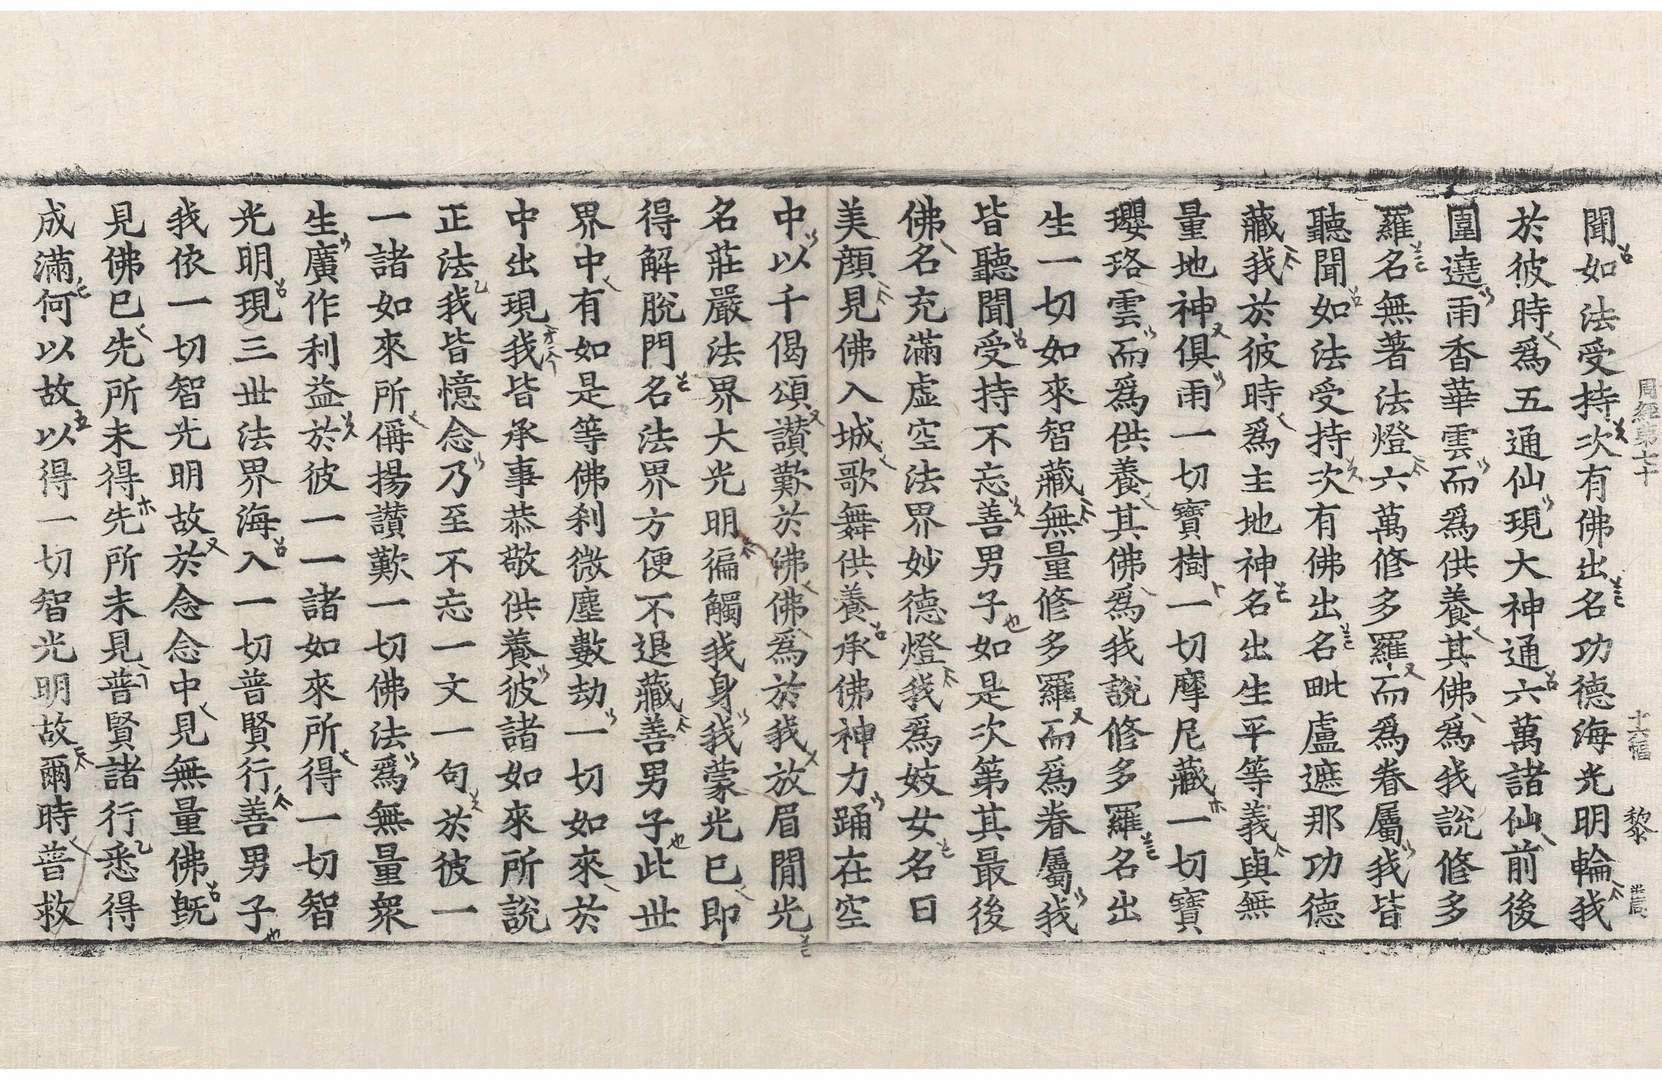 周經第七十 十六幅 黎
聞如法受持次有佛出名功德海光明輪我
於彼時爲五通仙現大神通六萬諸仙前後
圍遶雨香華雲而爲供養其佛爲我說修多
羅名無著法燈六萬修多羅而爲眷屬我皆
聽聞如法受持次有佛出名毗盧遮那功德
藏我於彼時爲主地神名出生平等義與無
量地神俱雨一切寶樹一切摩尼藏一切寶
瓔珞雲而爲供養其佛爲我說修多羅名出
生一切如來智藏無量修多羅而爲眷屬我
皆聽聞受持不忘善男子如是次第其最後
佛名充滿虛空法界妙德燈我爲妓女名曰
美顏見佛入城歌舞供養承佛神力踊在空
中以千偈頌讚歎於佛佛爲於我放眉間光
名莊嚴法界大光明徧觸我身我蒙光已即
得解脫門名法界方便不退藏善男子此世
界中有如是等佛刹微塵數劫一切如來於
中出現我皆承事恭敬供養彼諸如來所說
正法我皆憶念乃至不忘一文一句於彼一
一諸如來所稱揚讚歎一切佛法爲無量衆
生廣作利益於彼一一諸如來所得一切智
光明現三世法界海入一切普賢行善男子
我依一切智光明故於念念中見無量佛旣
見佛已先所未得先所未見普賢諸行悉得
成滿何以故以得一切智光明故爾時普救